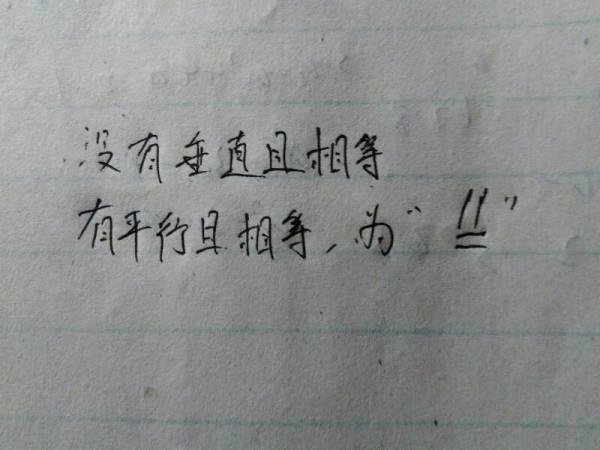 没有垂直且相等
有平行且相等，为“⫽=”